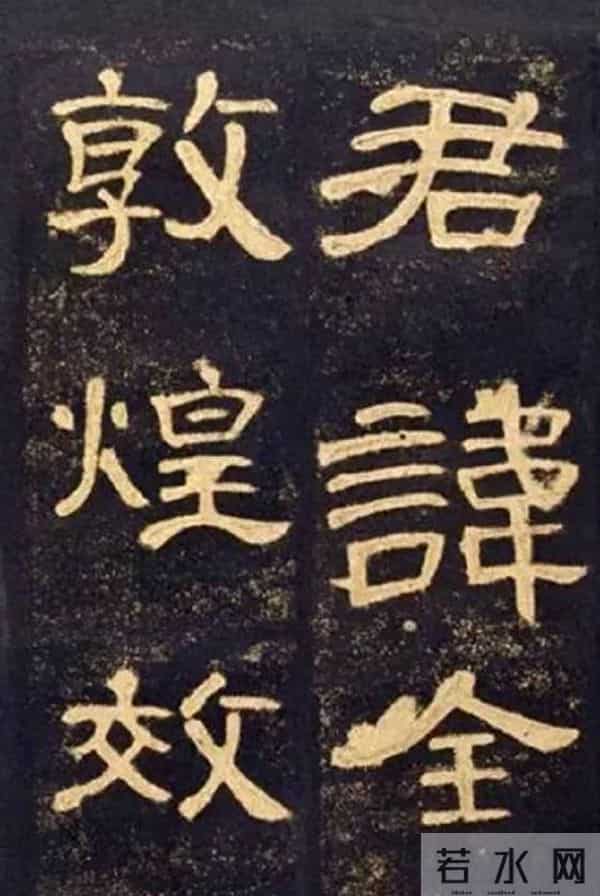 君諱全
敦煌效
若水网